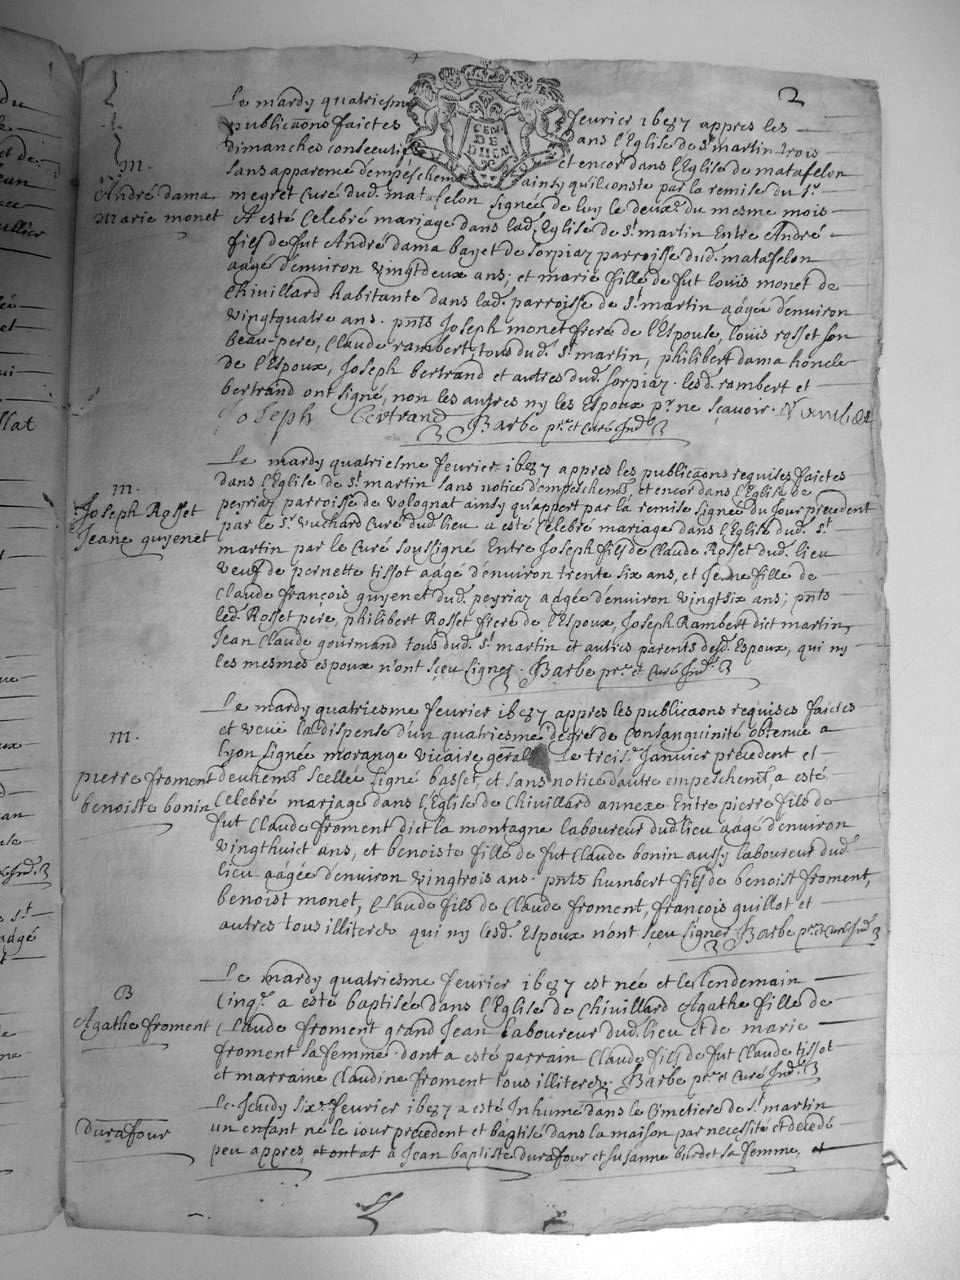 2
Le mardy quatriesme fevrier 1687 appres les
publicaōns faictes dans l'Eglise de St martin trois
dimanches consecutifs et encor dans l'Eglise de matafelon
sans apparence d'empeschem ainsy qu'il conste par la remise du Sr
m.
André dama
marie monet
megret Curé dud. matafelon signée de luy le deuxe du mesme mois
A esté Celebré mariage dans lad. Eglise de St martin Entre André
fils de fut André dama bayet de Sorpiaz parroisse dud. matafelon
aagé d'environ vingtdeux ans; et marie fille de fut louis monet de
Chivillard habitante dans lad. parroisse de St martin aagée d'environ
vingtquatre ans. pnts Joseph monet frere de l'Espouse, louis rosset son
beau-pere, Claude rambert, tous dud. St martin, philibert dama honcle
de l'Espoux, Joseph bertrand et autres dud. Sorpiaz. lesd. rambert et
bertrand ont signé, non les autres ny les Espoux pr ne sçavoir.
Joseph Bertrand Barbe pre et Curé
Le mardy quatriesme fevrier 1687 appres les publicaōns requises faictes
dans l'Eglise de St martin sans notice d'empeschemt, et encor dans l'Eglise de
m.
Joseph Rosset
Jeane guyenet
peyriaz parroisse de volognat ainsy qu'appert par la remise signée du Jour precedent
par le Sr vuchard Curé dud. lieu a esté Celebré mariage dans l'Eglise dud. St
martin par le Curé soussigné Entre Joseph fils de Claude Rosset dud. lieu
veuf de pernette tissot aagé d'environ trente six ans, et Jeane fille de
Claude françois guyenet dud. peyriaz aagée d'environ vingtsix ans; pnts
led. Rosset pere, philibert Rosset frere de l'Espoux, Joseph Rambert dict martin,
Jean Claude gourmand tous dud. St martin et autres parents desd. Espoux, qui ny
les mesmes espoux n'ont sçeu signer. Barbe pre et Curé
Le mardy quatriesme fevrier 1687 appres les publicaōns requises faictes
et veuë la dispense d'un quatriesme degre de Consanguinité obtenue a
m.
lyon signée morange vicaire general le trois. Janvier precedent et
pierre froment
benoiste bonin
deuhemt scellée signé basset, et sans notice dautre empeschemt, a esté
Celebré mariage dans l'Eglise de Chivillard annexe Entre pierre fils de
fut Claude froment dict la montagne laboureur dud. lieu aagé d'environ
vingthuict ans, et benoiste fille de fut Claude bonin aussy laboureur dud.
lieu aagée d'environ vingtrois ans. pnts humbert fils de benoist froment,
benoist monet, Claude fils de Claude froment, françois guillot et
autres tous illiteres qui ny lesd. Espoux n'ont sçeu signer Barbe pre et Curé
Le mardy quatriesme fevrier 1687 est née et le lendemain
B
Agathe froment
Cinqe a esté baptisée dans l'Eglise de Chivillard Agathe fille de
Claude froment grand Jean laboureur dud. lieu et de marie
froment sa femme. dont a esté parrain Claude fils de fut Claude tissot
et marraine Claudine froment tous illiteres. Barbe pre et Curé
Le Jeudy sixe fevrier 1687 a esté Inhumé dans le Cimetiere de St martin
durafour
un enfant né le iour precedent et baptisé dans la maison par necessité et decedé
peu appres, Jean baptiste durafour et susanne burdet sa femme, et